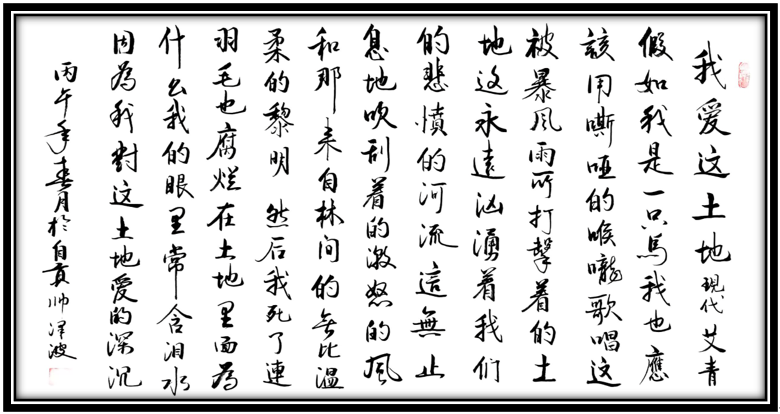 我爱这土地 現代 艾青
假如我是一只鳥我也應
該用嘶哑的喉嚨歌唱这
被暴风雨所打擊着的土
地这永遠汹湧着我们
的悲憤的河流這無止
息地吹刮着的激怒的風
和那来自林间的无比温
柔的黎明 然后我死了連
羽毛也腐烂在土地里面為
什么我的眼里常含泪水
因為我對这土地愛的深沉
丙午年春月於自貢帅泽波